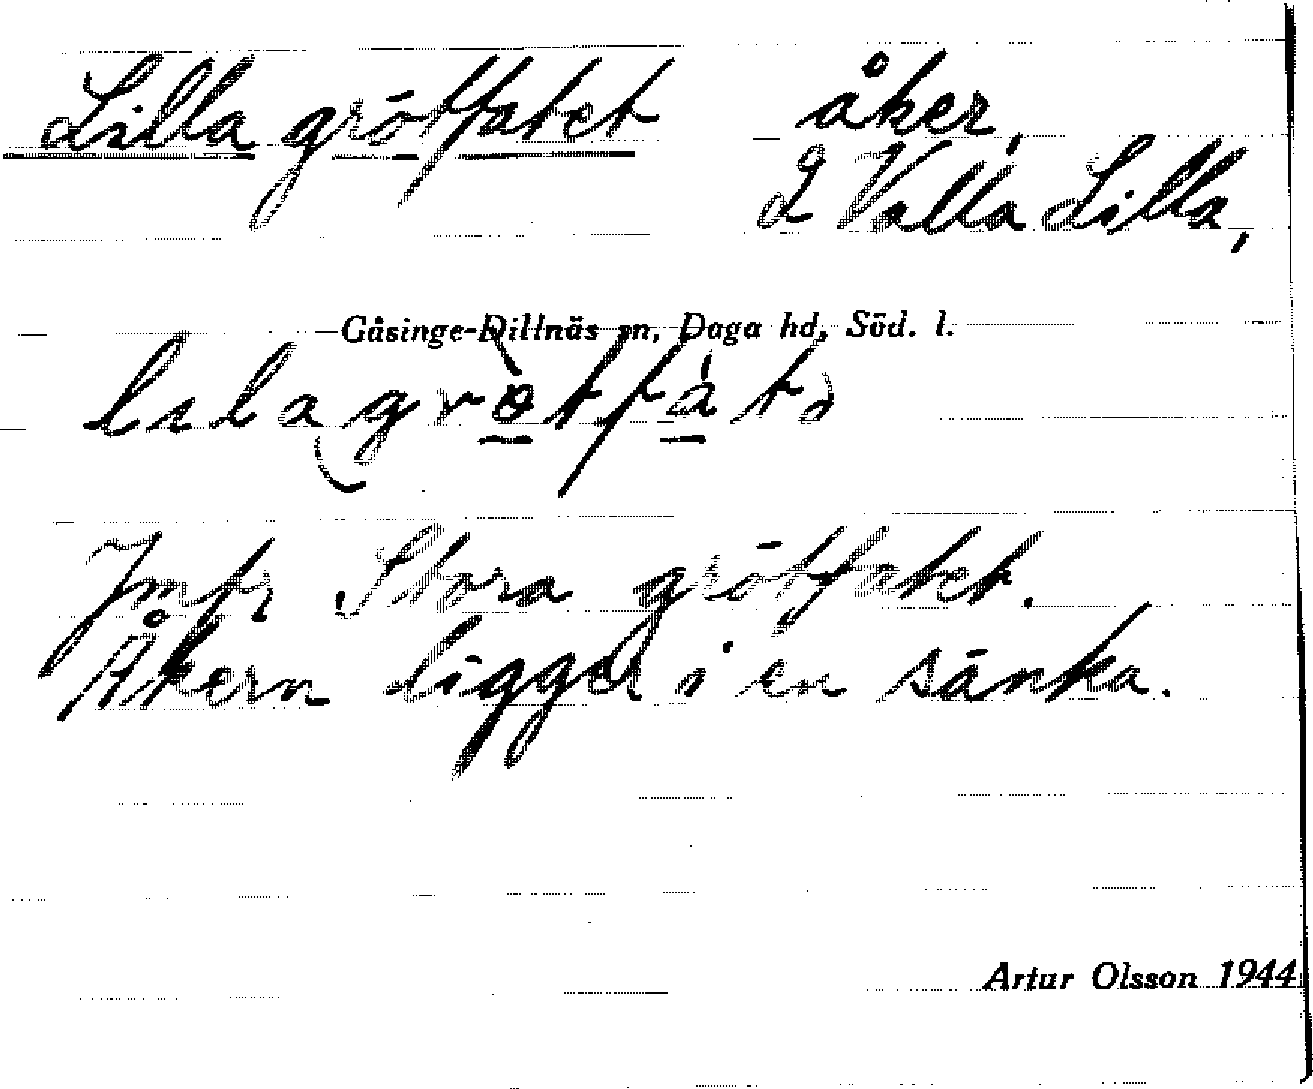 Lilla grötfatet åker,
2 Valla Lilla,
Gåsinge-Dillnäs sn, Daga hd, Söd. l.
Jmfr Stora grötfatet.
Åkern ligger i en sänka.
Artur Olsson 1944